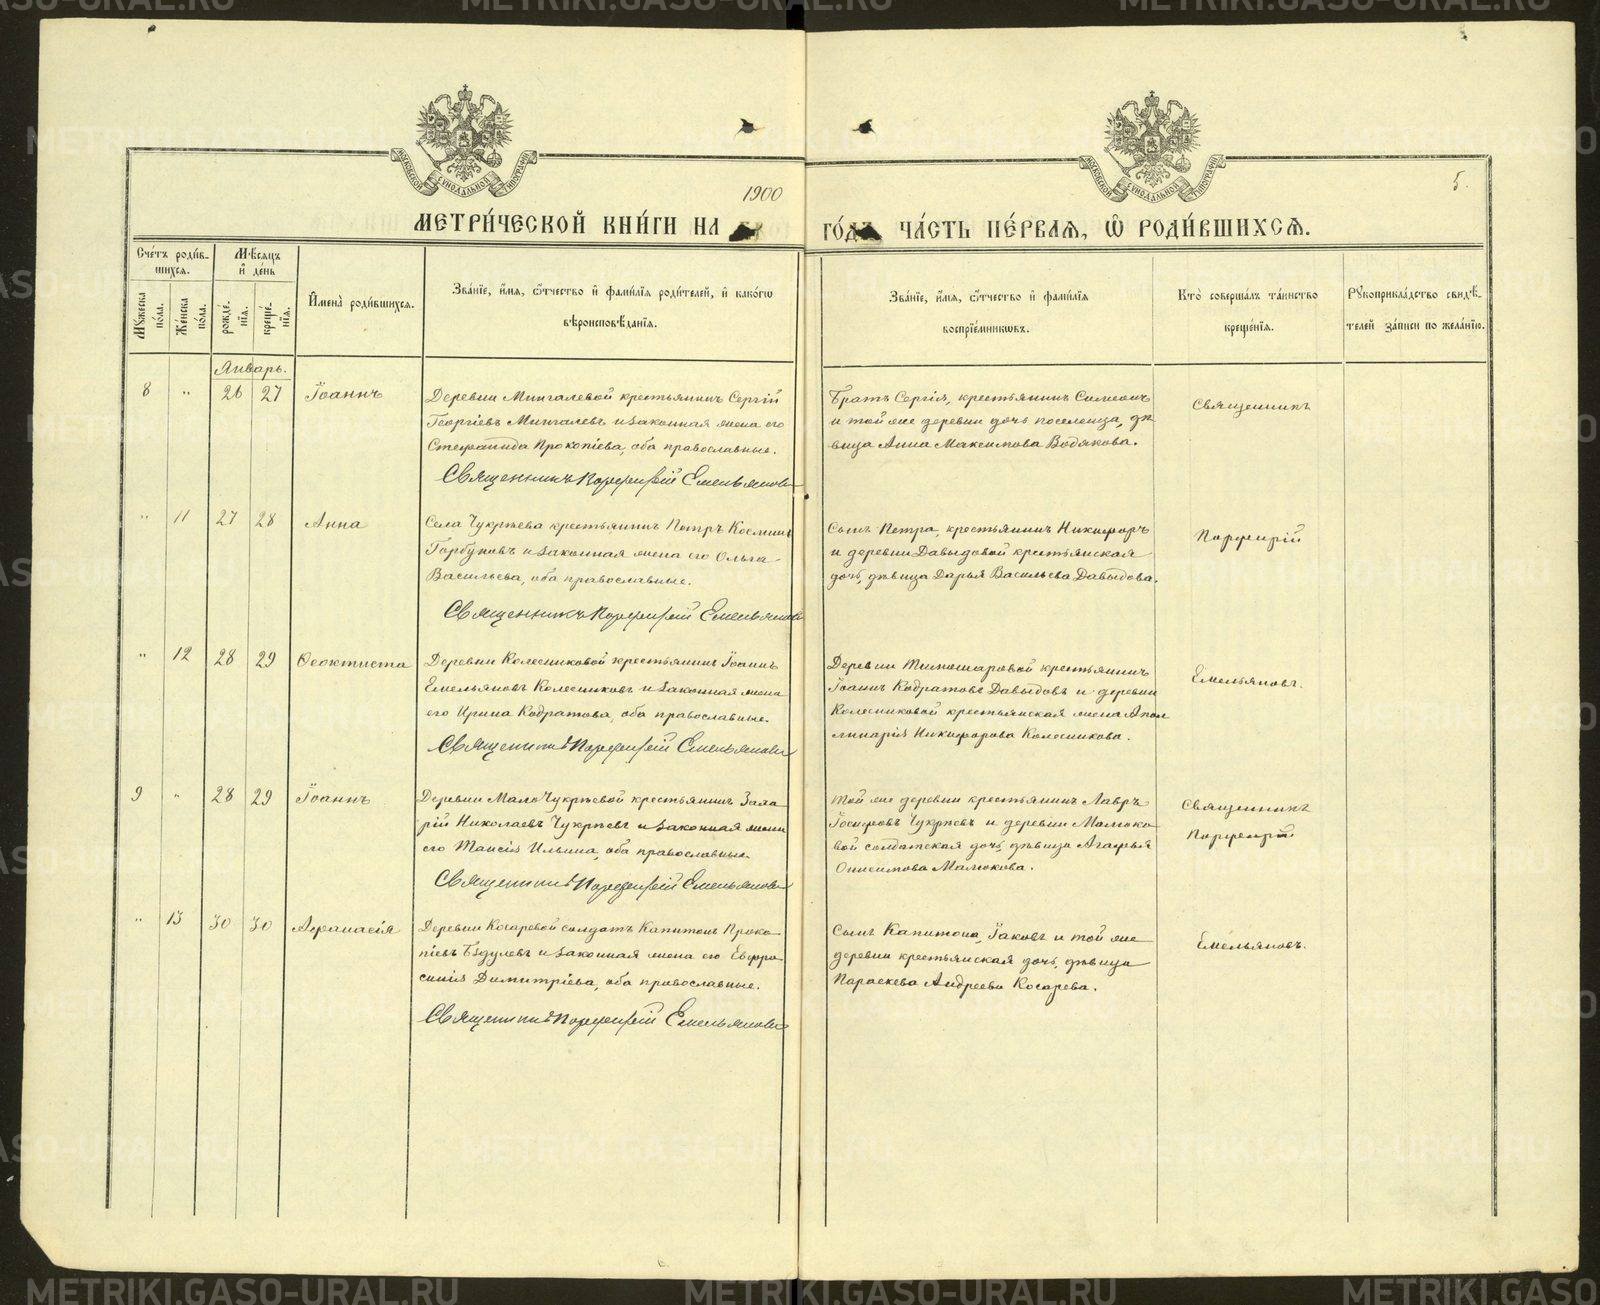 METRIKI.GASO-URAL.RU
МОСКОВСКОЙ СѴНОДАЛЬНОЙ ТИПОГРАФІИ
МОСКОВСКОЙ СѴНОДАЛЬНОЙ ТИПОГРАФІИ
1900
5.
МЕТРИ́ЧЕСКОЙ КНИ́ГИ НА
ГО́ДЪ ЧА́СТЬ ПЕ́РВАѦ, Ѿ РОДИ́ВШИХСѦ.
Сче́тъ роди́в-
шихсѧ.
Мꙋ́жеска по́ла.
Же́нска по́ла.
Мѣ́сѧцъ и҆ де́нь
рожде́нїѧ.
креще́нїѧ.
И҆мена̀ роди́вшихсѧ.
Зва́нїе, и҆́мѧ, ѻ҆́тчество и҆ фами́лїѧ роди́телей, и҆ како́гѡ
вѣроисповѣ́данїѧ.
Зва́нїе, и҆́мѧ, ѻ҆́тчество и҆ фами́лїѧ
воспрїе́мникѡвъ.
Кто̀ соверша́лъ та́инство
креще́нїѧ.
Рꙋкоприкла́дство свидѣ́-
телей за́писи по жела́нїю.
Январь.
8 " 26 27 Іоаннъ
Деревни Мингалевой крестьянинъ Сергій
Георгіевъ Мингалевъ и законная жена его
Стефанида Прокопіева, оба православные.
Священникъ Порфирій Емельяновъ
Братъ Сергія, крестьянинъ Симеонъ
и той же деревни дочь поселенца, дѣ
вица Анна Максимова Водякова.
Священникъ
" 11 27 28 Анна
Села Чукрѣева крестьянинъ Петръ Косминъ
Горбуновъ и законная жена его Ольга
Васильева, оба православные.
Священникъ Порфирій Емельяновъ
Сынъ Петра, крестьянинъ Никифоръ
и деревни Давыдовой крестьянская
дочь, дѣвица Дарья Васильева Давыдова.
Порфирій
" 12 28 29 Ѳеоктиста
Деревни Колесниковой крестьянинъ Іоаннъ
Емельяновъ Колесниковъ и законная жена
его Ирина Кодратова, оба православные.
Священникъ Порфирій Емельяновъ
Деревни Тимошаровой крестьянинъ
Іоаннъ Кодратовъ Давыдовъ и деревни
Колесниковой крестьянская жена Апол
линарія Никифорова Колесникова.
Емельяновъ.
9 " 28 29 Іоаннъ
Деревни МалоЧукрѣевой крестьянинъ Зала
рій Николаевъ Чукрѣевъ и законная жена
его Таисія Ильина, оба православные.
Священникъ Порфирій Емельяновъ
Той же деревни крестьянинъ Лавръ
Іосифовъ Чукрѣевъ и деревни Малюко
вой солдатская дочь, дѣвица Агафья
Онисимова Малюкова.
Священникъ
Порфирій
" 13 30 30 Афанасія
Деревни Косаревой солдатъ Капитонъ Проко
піевъ Бздулевъ и законная жена его Евфро
синія Димитріева, оба православные.
Священникъ Порфирій Емельяновъ
Сынъ Капитона, Іаковъ и той же
деревни крестьянская дочь, дѣвица
Параскева Андреева Косарева.
Емельяновъ.